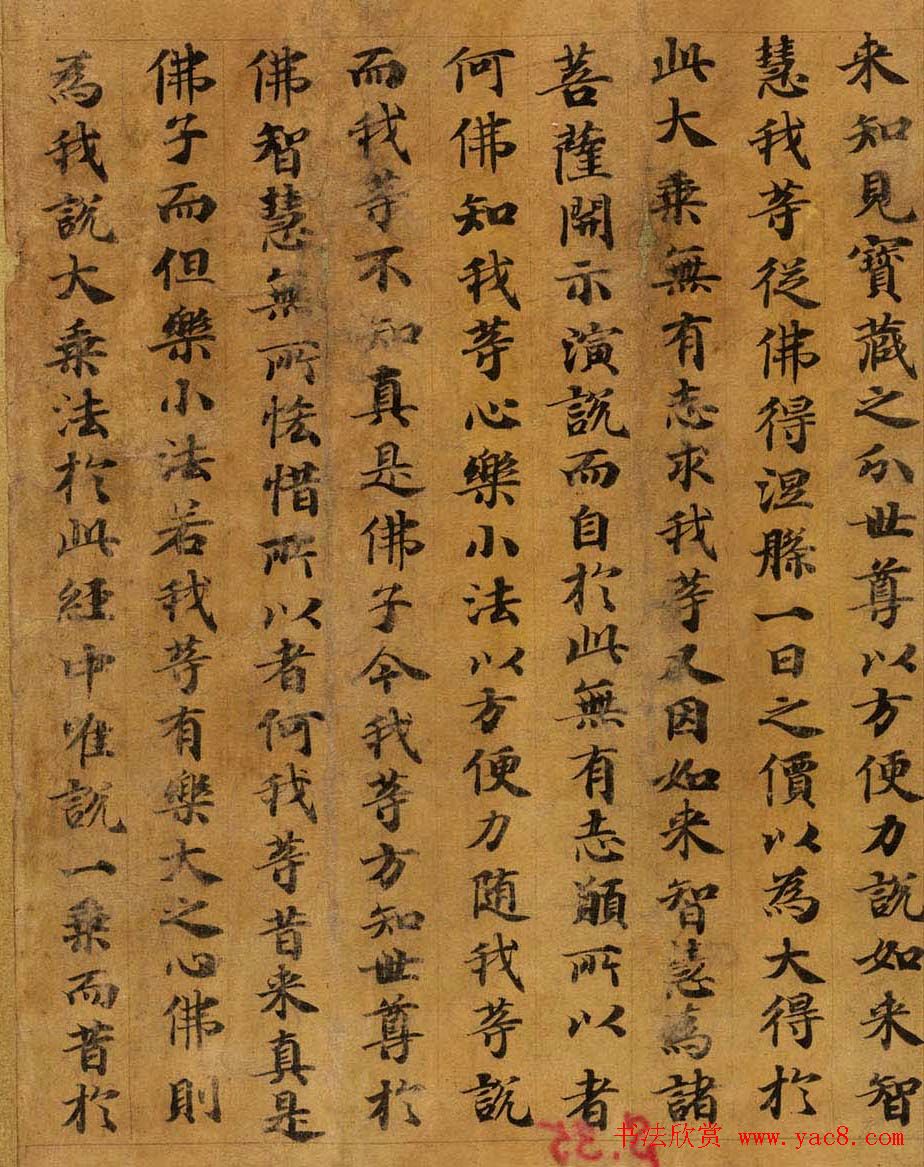 来知見寶藏之分世尊以方便力說如来智
慧我等從佛得涅槃一日之價以為大得於
此大乗無有志求我等又因如来智慧為諸
菩薩開示演說而自於此無有志願所以者
何佛知我等心樂小法以方便力随我等說
而我等不知真是佛子今我等方知世尊於
佛智慧無所恡惜所以者何我等昔来真是
佛子而但樂小法若我等有樂大之心佛則
為我說大乗法於此經中唯說一乗而昔於
书法欣赏 www.yac8.com